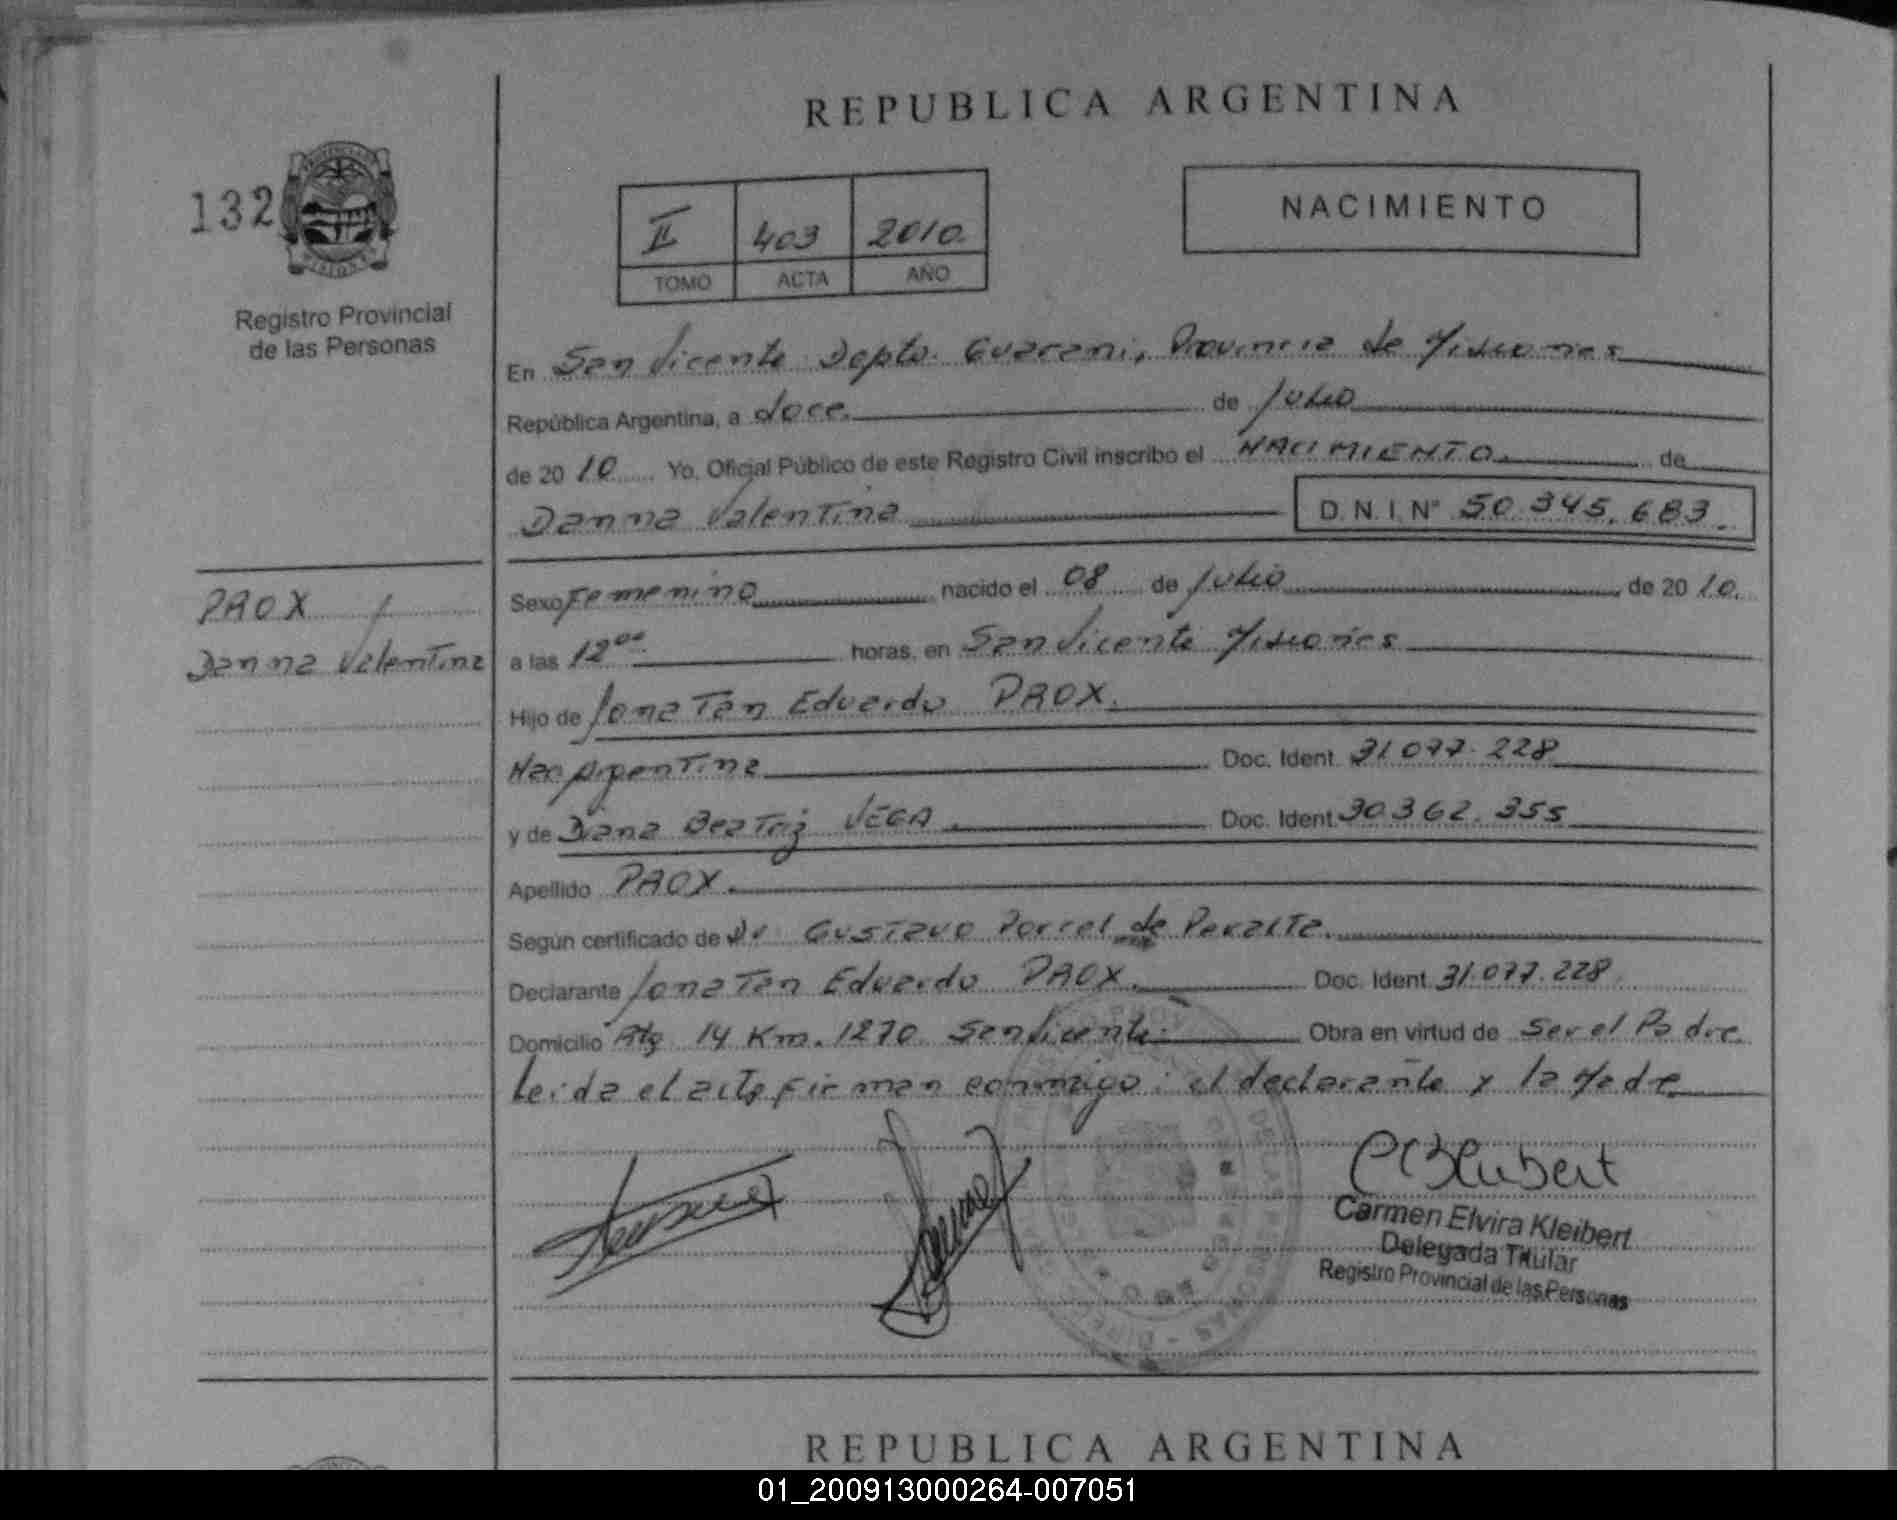 REPUBLICA ARGENTINA
132
Registro Provincial
de las Personas
II 403 2010
TOMO ACTA AÑO
NACIMIENTO
En San Vicente Depto. Guarani, Provincia de Misiones
República Argentina, a doce. de Julio
de 20 10 Yo, Oficial Público de este Registro Civil inscribo el NACIMIENTO. de
Danna Valentina D.N.I. Nº 50.345.683.
PROX
Danna Valentina
Sexo Femenino nacido el 08 de Julio de 20 10.
a las 12⁰⁰ horas, en San Vicente Misiones
Hijo de Jonatan Eduardo PROX.
Nac. Argentina Doc. Ident. 31.077.228
y de Diana Beatriz VEGA. Doc. Ident. 30.362.355
Apellido PROX.
Según certificado de Dr. Gustavo Porcel de Peralta.
Declarante Jonatan Eduardo PROX. Doc. Ident. 31.077.228
Domicilio Rta 14 Km. 1270 San Vicente. Obra en virtud de Ser el Padre
Leida el acta firman conmigo: el declarante y la Madre
Carmen Elvira Kleibert
Delegada Titular
Registro Provincial de las Personas
REPUBLICA ARGENTINA
01_200913000264-007051